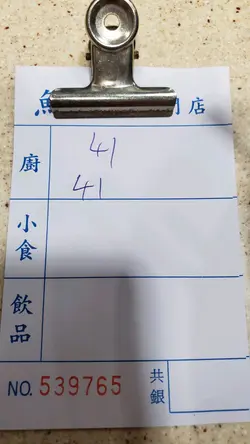 魚
門店
廚
41
41
小食
飲品
NO. 539765
共銀